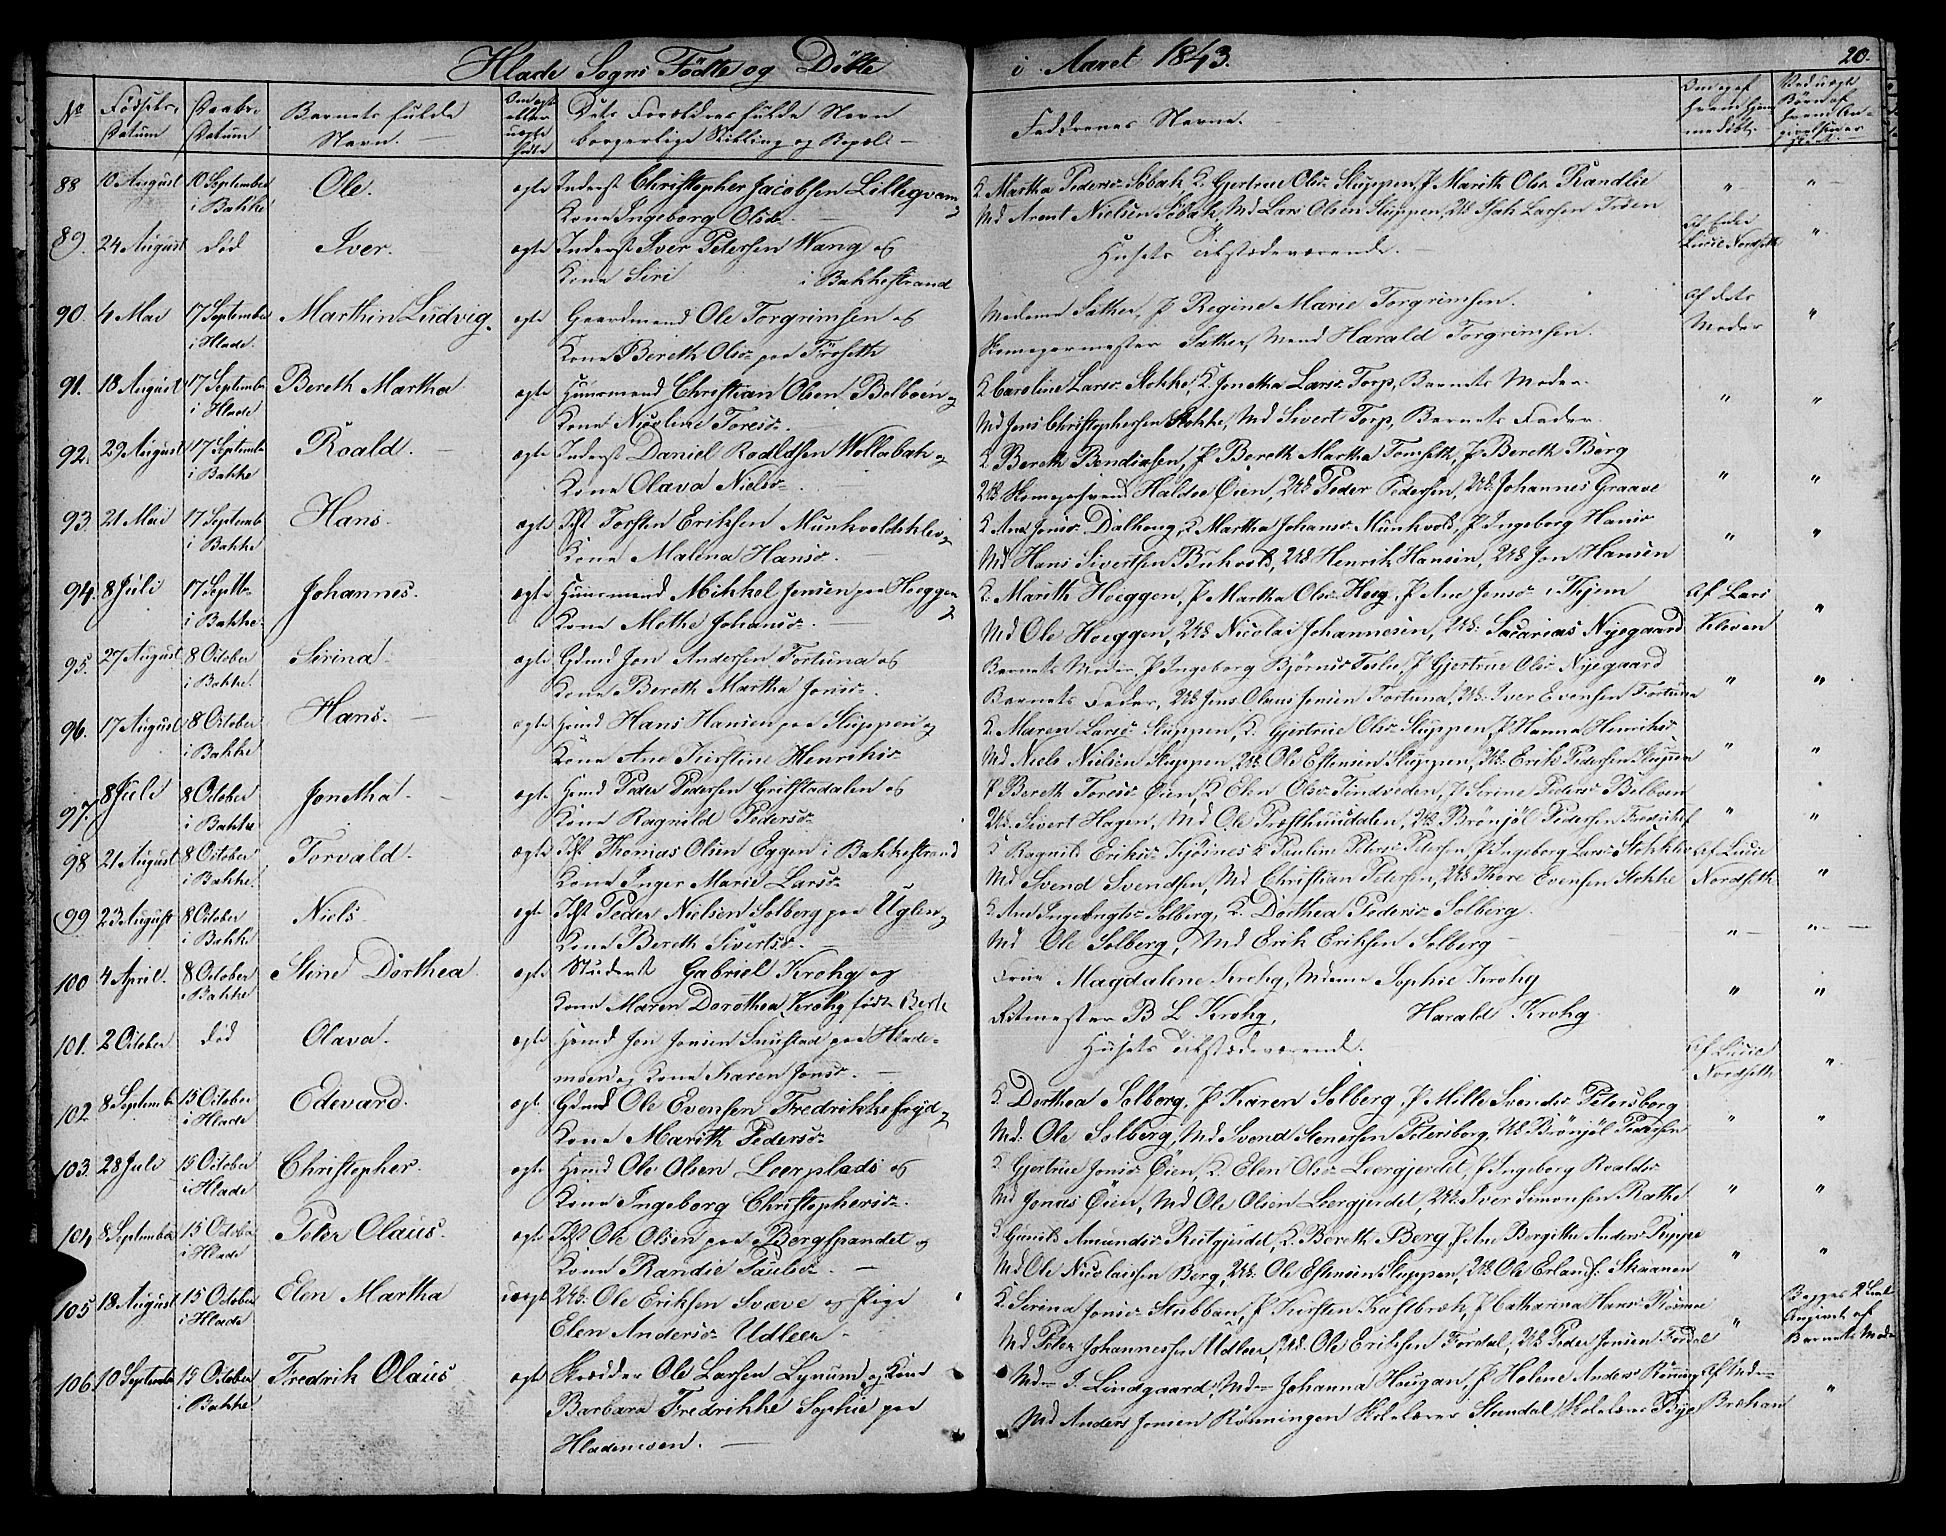 Hlade Sogns Födte og Döbte i Aaret 1843. 20.
No Födsels Datum Daabs Datum Barnets fulde Navn. ægte eller uægte födte Dets Forældres fulde Navn borgerlige Stilling og Bopæl
Faddernes Navne.
88 10 August 10 September i Bakke Ole. ægte Inderst Christopher Jacobsen Lillegvam og
Kone Ingeborg Olsd.
K. Martha Pedersd. Sobak, K. Gjertrue Olsd. Sluppen, P. Marith Olsd. Randlie
Md Arent Nielsen Sobak, Md Lars Olsen Sluppen, Larsen Troen
89. 24 August död Iver. ægte Inderst Iver Petersen Wang og
Kone Siri i Bakkestrand
Husets Tilstædeværende.
Lucie Nordseth
90. 4 Mai 17 September i Hlade. Marthin Ludvig. ægte Gaardmand Ole Torgrimsen og
Kone Bereth Olsd. paa
Madame Sather, P Regine Marie Torgrimsen.
Sather, Mand Harald Torgrimsen.
af dets Moder
91. 18 August 17 September i Hlade Bereth Martha ægte Huusmand Christian Olsen Belboen og
Kone Nicoline Toresd.
K Caroline Larsd. Stokke, K. Jonetha Larsd. Torp, Barnets Moder.
Md Jens Christophersen Stokke, Md Sivert Torp, Barnets Fader.
92. 29 August 17 September i Bakke Roald. ægte Inderst Daniel Roaldsen Wollabak og
Kone Olava Nielsd.
K Bereth Bendiksen, P Bereth Martha Tomseth, P Bereth Berg
Halder Öien, Uk Peder Pedersen, Uk Johannes Graave
93 21 Mai 17 Septemb i Bakke Hans. ægte Ihst Torsten Eriksen Munkvoldsklev og
Kone Malena Hansd.
K. Ane Jonsd. Dalhoug, K Martha Johansd. Munkvold, P Ingeborg Hansd.
Md Hans Sivertsen Buhvold, Uk Henrik Hansen, Uk Jon Hansen
94. 8 Juli 17 Septb. i Bakke. Johannes. ægte Huusmand Mikkel Jensen paa Hoeggen og
Kone Methe Johansd.
K. Marith Hoeggen, P Martha Olsd. Hoeg, P Ane Jonsd. i Tyem
Md Ole Hoeggen, Uk Nicolai Johannesen, Uk. Sacarias Nyegaard
Af Lars Kleven
95. 27 August 8 October i Bakke. Sirina. ægte Gdmd Jon Andersen Fortuna og
Kone Bereth Martha Jonsd.
Barnets Moder, P Ingeborg Bjørnsd. P Gjertrue Olsd. Nyegaard
Barnets Fader, Uk Jens Olaus Jonsen Fortuna, Uk. Iver Evensen Fortuna
96. 17 August 8 October i Bakke Hans. ægte Hmd Hans Hansen paa Sluppen og
Kone Ane Kirstine Henriksd.
K. Maren Larsd. Sluppen, K. Gjertrue Olsd. Sluppen, P Hanna Henriksd.
Md Niels Nielsen Sluppen, Uk Ole Estensen Sluppen, Uk. Erik Pedersen Sluppen
97. 8 Juli 8 October i Bakke Jonetha. ægte Hmd Peder Pedersen Grilstadalen og
Kone Ragnild Pedersd.
P Bereth Toresd. Öien, K Elen Olsd. Tindveden, P Serine Pedersd. Belboen
Uk. Sivert Hagen, Md Ole Præsthuusdalen, Uk Brönjöl Pedersen
98 21 August 8 October i Bakke. Torvald. ægte Ihst Thomas Olsen Eggen i Bakkestrand
Kone Inger Marie Larsd.
K Ragnild Eriksd. K Pauline Petersd. Petersen, P Ingeborg Larsd. Stokke
Md Svend Svendsen, Md Christian Petersen, Uk Thore Evensen Stokke
Af Lucie Nordseth
99 23 August 8 October i Bakke Niels. ægte Ihst Peder Nielsen Solberg paa Uglen og
Kone Bereth Sivertsd.
K. Ane Solberg, K. Dorthea Pedersd. Solberg.
Md Ole Solberg, Md Erik Eriksen Solberg
100 4 April. 8 October i Bakke Stine Dorthea ægte Student Gabriel Krohg og
Kone Maren Dorothea Krohg födt Berk
Frue Magdalene Krohg, Madame Sophie Krohg
Ritmester B L Krohg, Harald Krohg.
101. 2 October död Olava. ægte Hmd Jon Jonsen paa Hlade-
moen og Kone Karen Jonsd.
Husets Tilstædeværende.
Af Lucie Nordseth
102. 8 Septembr 15 October i Hlade Edevard. ægte Gdmd Ole Evensen Fredrikkefryd og
Kone Marith Pedersd.
K Dorthea Solberg, P Karen Solberg, P Mille Svendsd. Petersborg
Md. Ole Solberg, Md Svend Stenersen Petersborg, Uk Brönjöl Pedersen
103. 28 Juli 15 October i Hlade Christopher. ægte Hmd Ole Olsen Leerplads og
Kone Ingeborg Christophersd.
K Gjertrue Jonsd. Öien, K. Elen Olsd. Leergjerdet, P Ingeborg Roaldsd.
Md Jonas Öien, Md Ole Olsen Leergjerdet, Uk. Iver Simonsen Rathe.
104 8 September 15 October i Hlade Peter Olaus. ægte Ihst Ole Olsen paa Bergspandet og
Kone Randie Paulsd.
K. Gunild Amundsd. Reitgjerdet, K. Bereth Berg P Ane Bergithe Andersd.
Md Ole Nicolaisen Berg, Uk. Ole Estensen Sluppen, Uk Ole Erlands. Skaanen
105 18 August 15 October i Hlade Elen Martha uægte Uk. Ole Eriksen Svæve og Pige
Elen Andersd. Udleer.
K. Sirina Jonsd. Stubban, P Kirsten Kastbrek, P Catharina Hansd.
Md Peter Johannessen Udleer, Uk. Ole Eriksen Fordal, Uk Peder Jonsen Fordal
Begges 2
Angivet af Barnets Moder
106 10 Septembr 15 October i Bakke. Fredrik Olaus ægte Skrædder Ole Larsen Lynum og Kone
Barbara Fredrikke Sophie paa
Hlademoen.
Md I. Lindgaard, Md Johanna Hougan, P Helene Andersd. Rönning
Md Anders Jonsen Rönningen Skolelærer Stendal Skolelærer Bye
Af Mdm Brekan